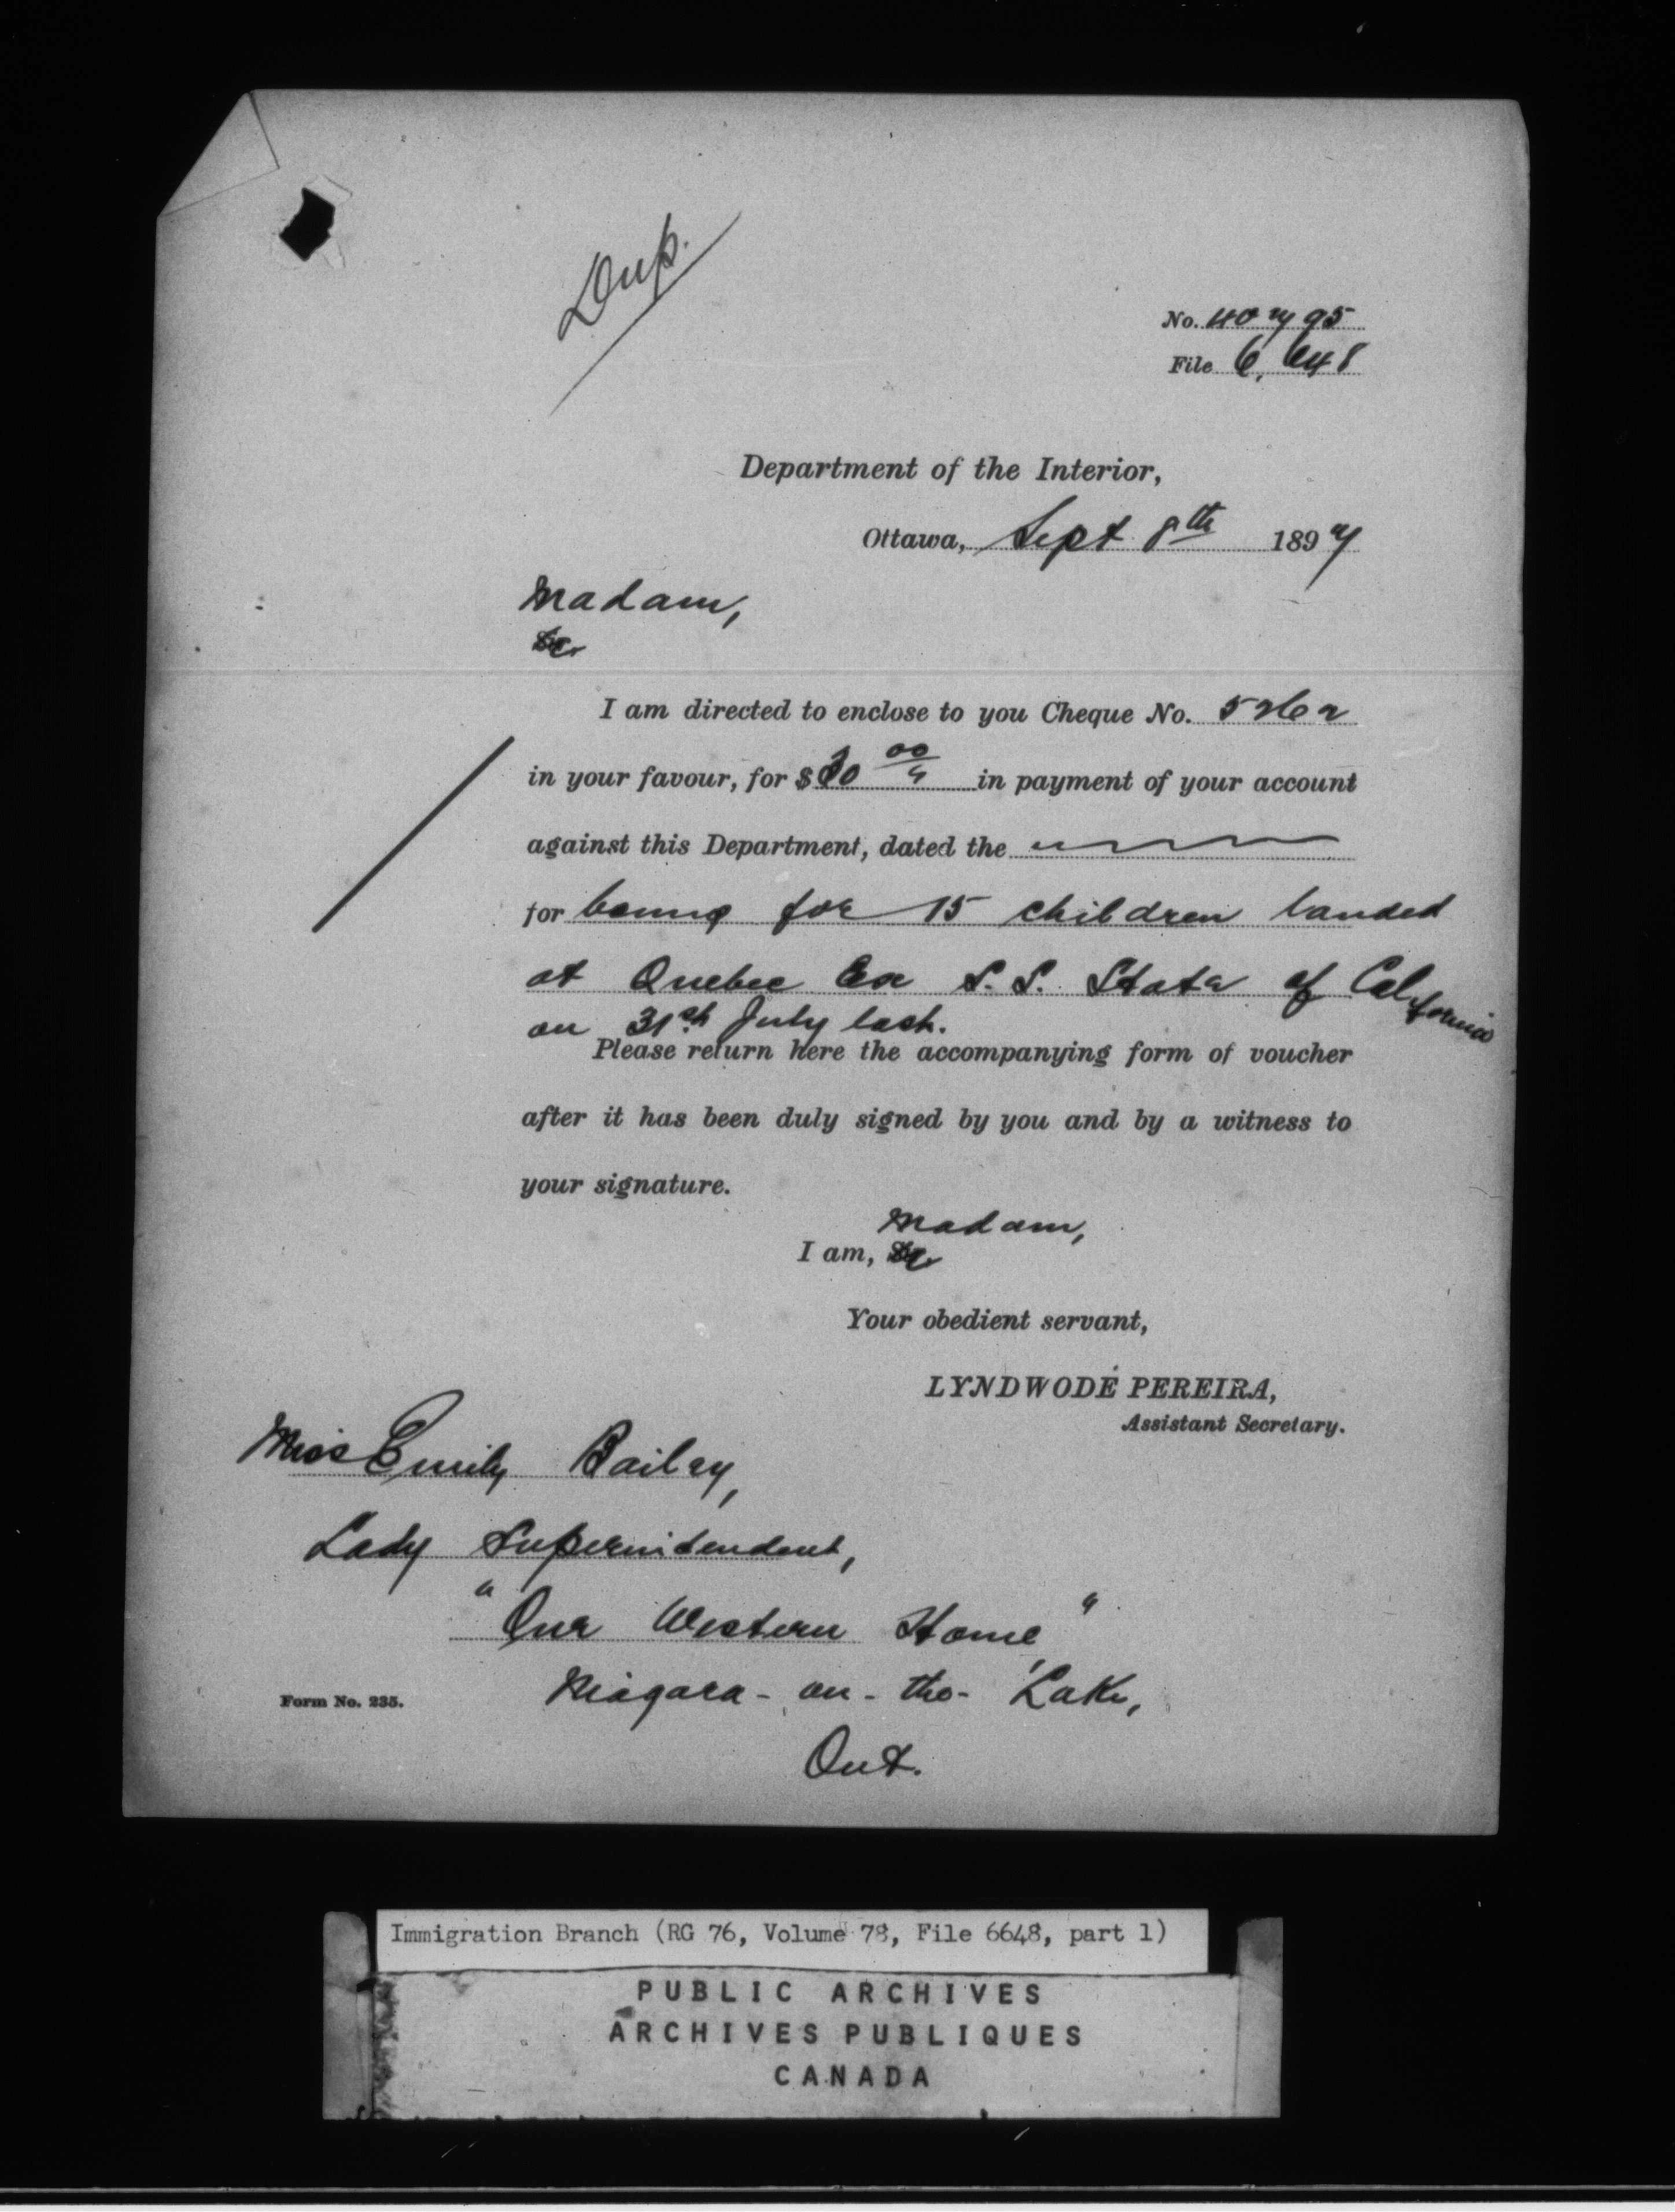 Dup.
No. 40795
File 6,648
Department of the Interior,
Ottawa, Sept 8th 1897
Madam,
I am directed to enclose to you Cheque No. 5262
in your favour, for $30 00/ in payment of your account
against this Department, dated the
for bonus for 15 children landed
at Quebec Ex S.S. State of California
on 31st July last.
Please return here the accompanying form of voucher
after it has been duly signed by you and by a witness to
your signature.
Madam,
I am,
Your obedient servant,
LYNDWODE PEREIRA,
Assistant Secretary.
Miss Emily Bailey,
Lady Superintendent,
"Our Western Home,"
Form No. 235.
Niagara-on-the-Lake,
Ont.
Immigration Branch (RG 76, Volume 78, File 6648, part 1)
PUBLIC ARCHIVES
ARCHIVES PUBLIQUES
CANADA